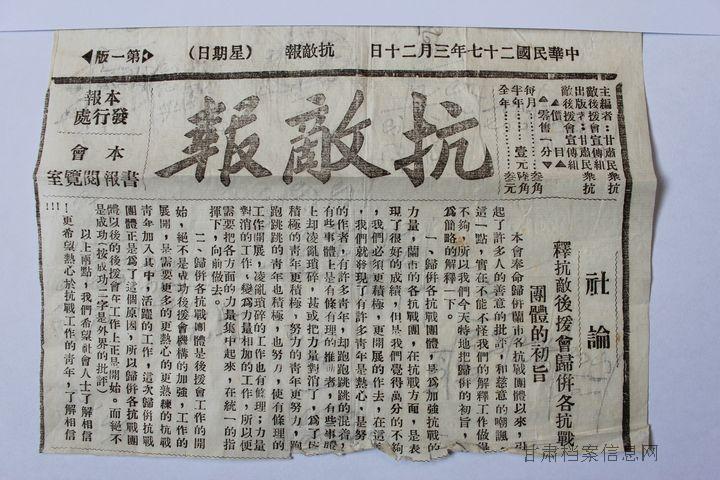 中華民國二十七年三月二十日　抗敵報　(星期日)　第一版
抗敵報
主編者：甘肅民衆抗
敵後援會宣傳組
出版者：甘肅民衆抗
敵後援會宣傳組
▲價目▼
▲零售一分▼
每月……叁角
半年…壹元陸角
全年……叁元
本報
發行處
本會
書報閱覽室
社論
釋抗敵後援會歸併各抗戰
團體的初旨
本會奉命歸併蘭市各抗戰團體以來，引
起了許多人的善意的批評，和慈意的嘲諷，
這一點，實在不能不怪我們的解釋工作做得
不夠，所以我們今天特地把歸併的初旨，
爲簡略的解釋一下。
一、歸併各抗戰團體，是爲加強抗戰的
力量，蘭市的各抗戰團體，在抗戰方面，是表
現了很好的成績，但是我們覺得萬分的不夠
，我們必須更積極，更開展的作去，在這
，我們就發現了有許多青年是熱心，是努
的作者，有許多青年，却跑跑跳跳的混着，
有些事體上是有條有理的推動者，有些事體
上却凌亂瑣碎，甚或把力量對消了，爲了使
積極的青年更積極，努力的青年更努力，跑
跑跳跳的青年也積極，也努力，使有條理的
工作開展，凌亂瑣碎的工作也有條理；力量
對消的工作，變爲力量相加的工作，所以便
需要把各方面的力量集中起來，在統一的指
揮下，向前做去。
二、歸併各抗戰團體是後援會工作的開
始，絕不是成功後援會機構的加強，工作的
展開，是需要更多的更熱心的更熟練的抗戰
青年加入其中，活躍的工作，這次歸併抗戰
團體正是爲了這個原因，所以歸併各抗戰團
體以後的後援會在工作上正是開始。而絕不
是成功(按成功二字是外界的批評)
以上兩點，我們希望社會人士了解相信
，更希望熱心於抗戰工作的青年，了解相信
!!!
甘肃档案信息网